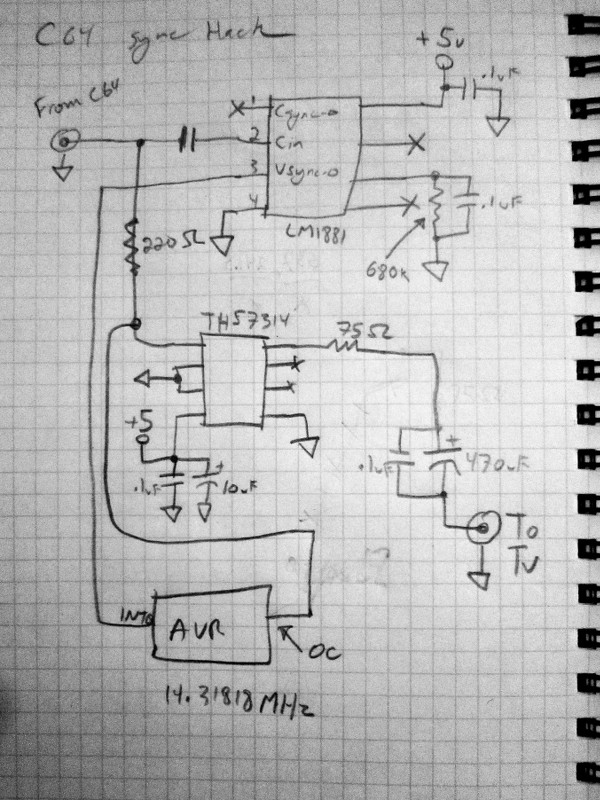 C64 sync Hack
+5v
.1uF
From C64
1 Csync-o
2 Cin
3 Vsync-o
4
LM1881
.1uF
680k
220Ω
THS7314
75Ω
+5
.1uF
10uF
.1uF
+
470uF
To
TV
INT0
AVR
OC
14.31818MHz